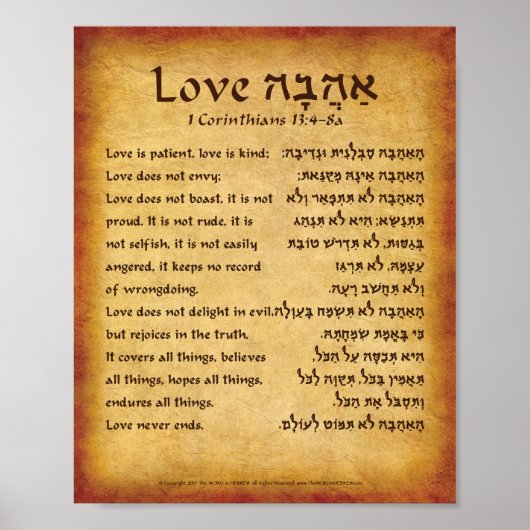 Love אַהֲבָה
1 Corinthians 13:4-8a
Love is patient, love is kind; הָאַהֲבָה סַבְלָנִית וּנְדִיבָה;
Love does not envy; הָאַהֲבָה אֵינָהּ מְקַנֵּאת;
Love does not boast, it is not הָאַהֲבָה לֹא תִּתְפָּאֵר וְלֹא
proud. It is not rude, it is תִּתְנַשֵּׂא; הִיא לֹא תִּתְנַהֵג
not selfish, it is not easily בְּגַסּוּת, לֹא תִּדְרֹשׁ טוֹבַת
angered, it keeps no record עַצְמָהּ, לֹא תִּרְגַּז
of wrongdoing. וְלֹא תַּחֲשֹׁב רָעָה.
Love does not delight in evil, הָאַהֲבָה לֹא תִּשְׂמַח בְּעַוְלָה,
but rejoices in the truth. כִּי בָּאֱמֶת שִׂמְחָתָהּ.
It covers all things, believes הִיא תְּכַסֶּה עַל הַכֹּל,
all things, hopes all things, תַּאֲמִין בַּכֹּל, תְּקַוֶּה לַכֹּל
endures all things. וְתִסְבֹּל אֶת הַכֹּל.
Love never ends. הָאַהֲבָה לֹא תִּמּוֹט לְעוֹלָם.
© Copyright 2017 The WORD in HEBREW All Rights Reserved. www.TheWORDinHEBREW.com